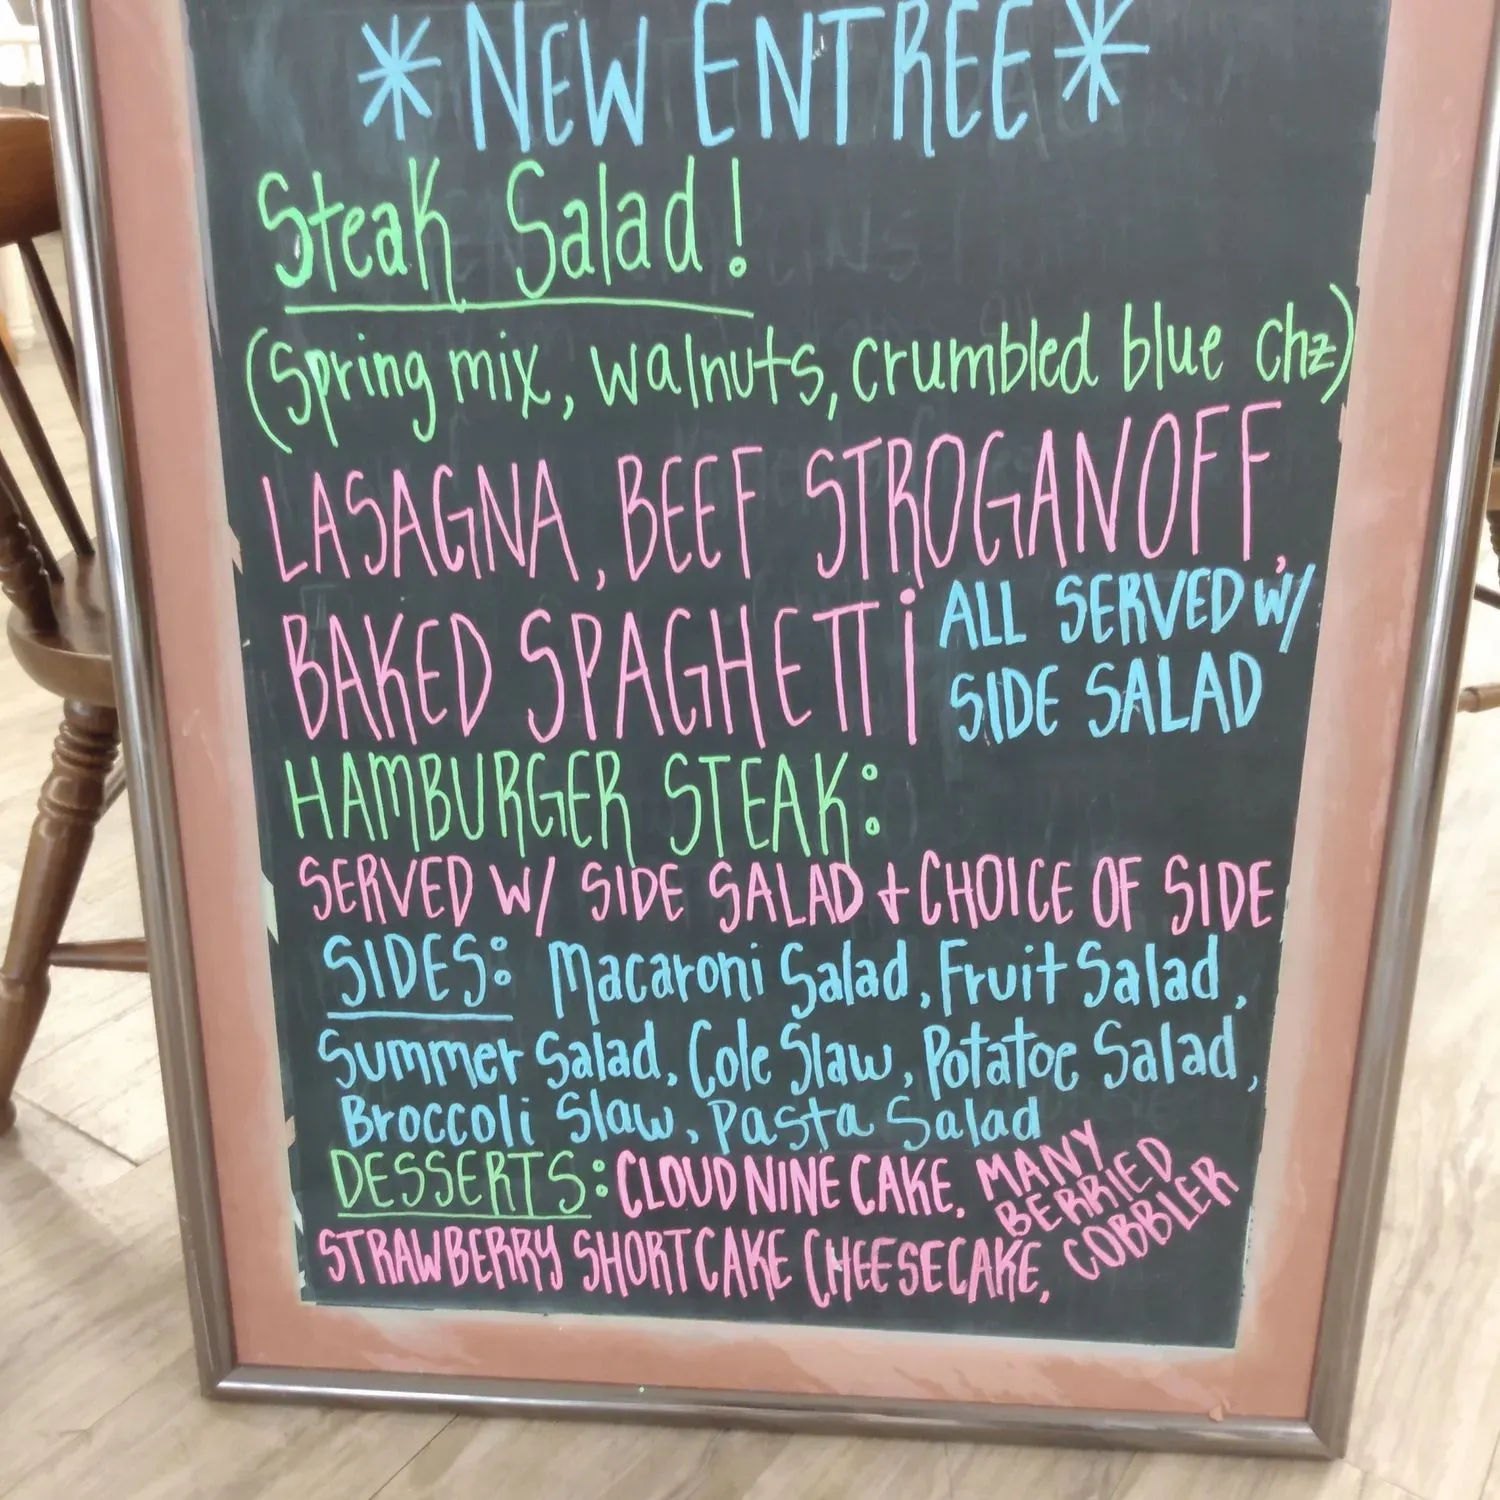 *NEW ENTREE*
Steak Salad!
(Spring mix, walnuts, crumbled blue chz)
LASAGNA, BEEF STROGANOFF,
BAKED SPAGHETTI
ALL SERVED W/
SIDE SALAD
HAMBURGER STEAK:
SERVED W/ SIDE SALAD + CHOICE OF SIDE
SIDES: Macaroni Salad, Fruit Salad,
Summer Salad, Cole Slaw, Potatoe Salad,
Broccoli Slaw, Pasta Salad
DESSERTS: CLOUD NINE CAKE,
STRAWBERRY SHORTCAKE CHEESECAKE,
MANY
BERRIED
COBBLER